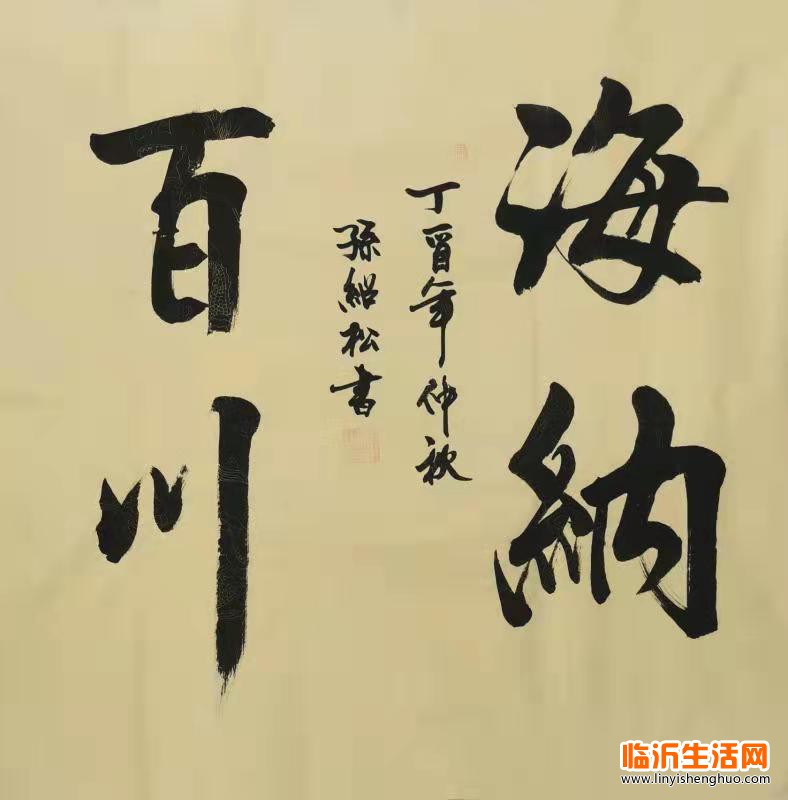 海納
百川
丁酉年仲秋
孫紹松書
临沂生活网
www.linyishenghuo.com